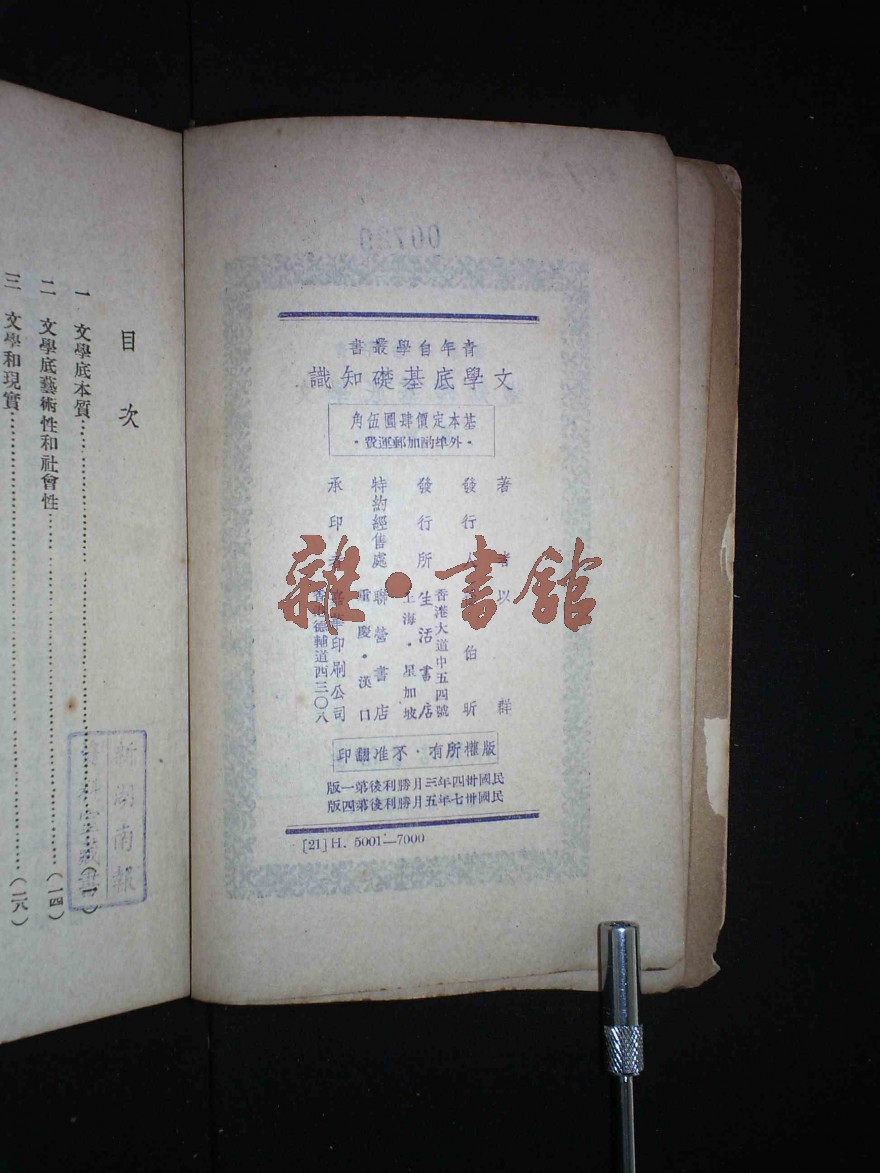 青年自學叢書
文學底基礎知識
基本定價肆圓伍角
·外埠酌加郵運費·
著者 以群
發行人 伯昕
發行所 生活書店
香港大道中五四號
上海·星加坡
特約經售處 聯營書店
重慶·漢口
承印者 印刷公司
香港德輔道西三〇八
版權所有·不准翻印
民國卅四年三月勝利後第一版
民國卅七年五月勝利後第四版
[21]H. 5001—7000
目次
一 文學底本質……(一)
二 文學底藝術性和社會性……(一四)
三 文學和現實……(二八)
新湖南報
藏書
雜·書館